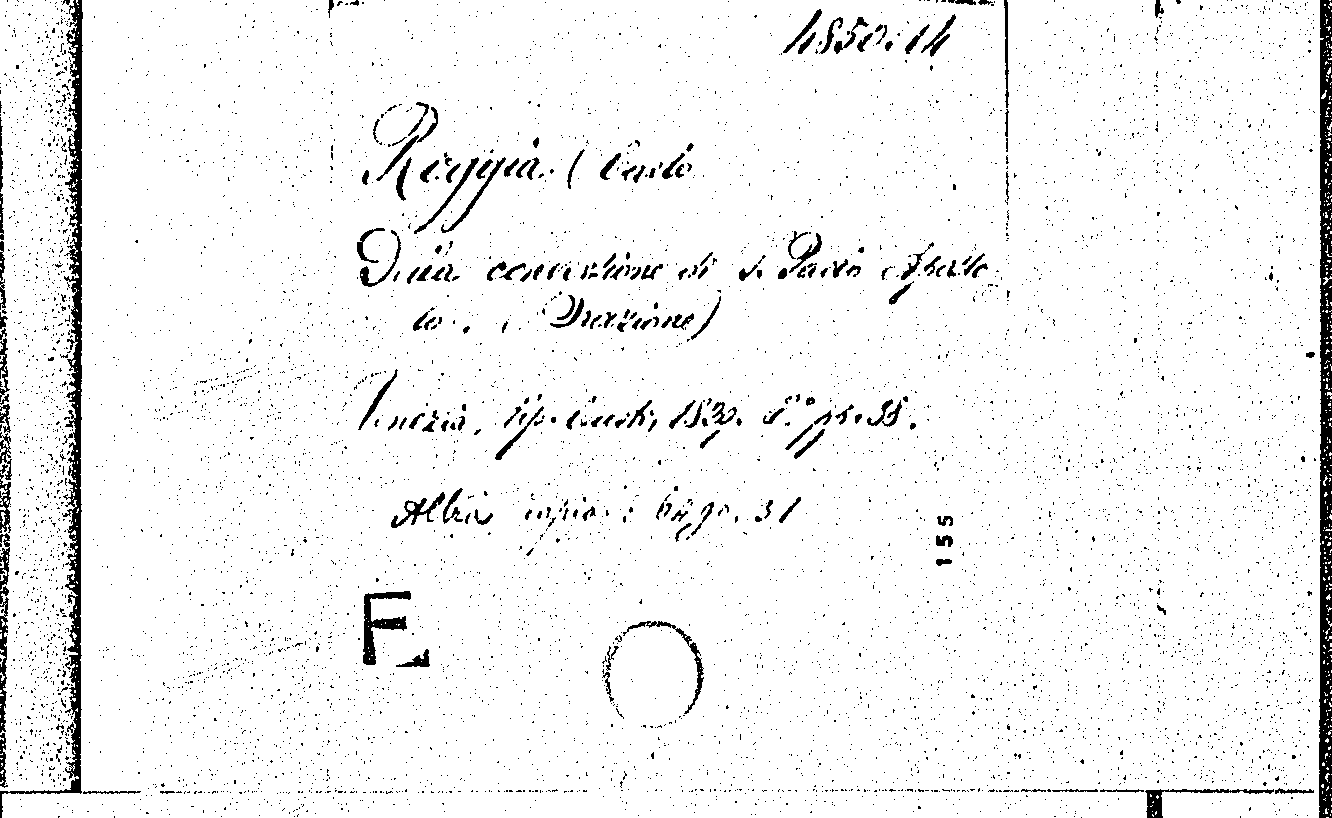 4850.14
Reggia. (Carlo
Della conversione di S. Paolo Aposto
lo. (Orazione)
Venezia, tip. 8.° pp. 38.
Altra copia: 31
155
E